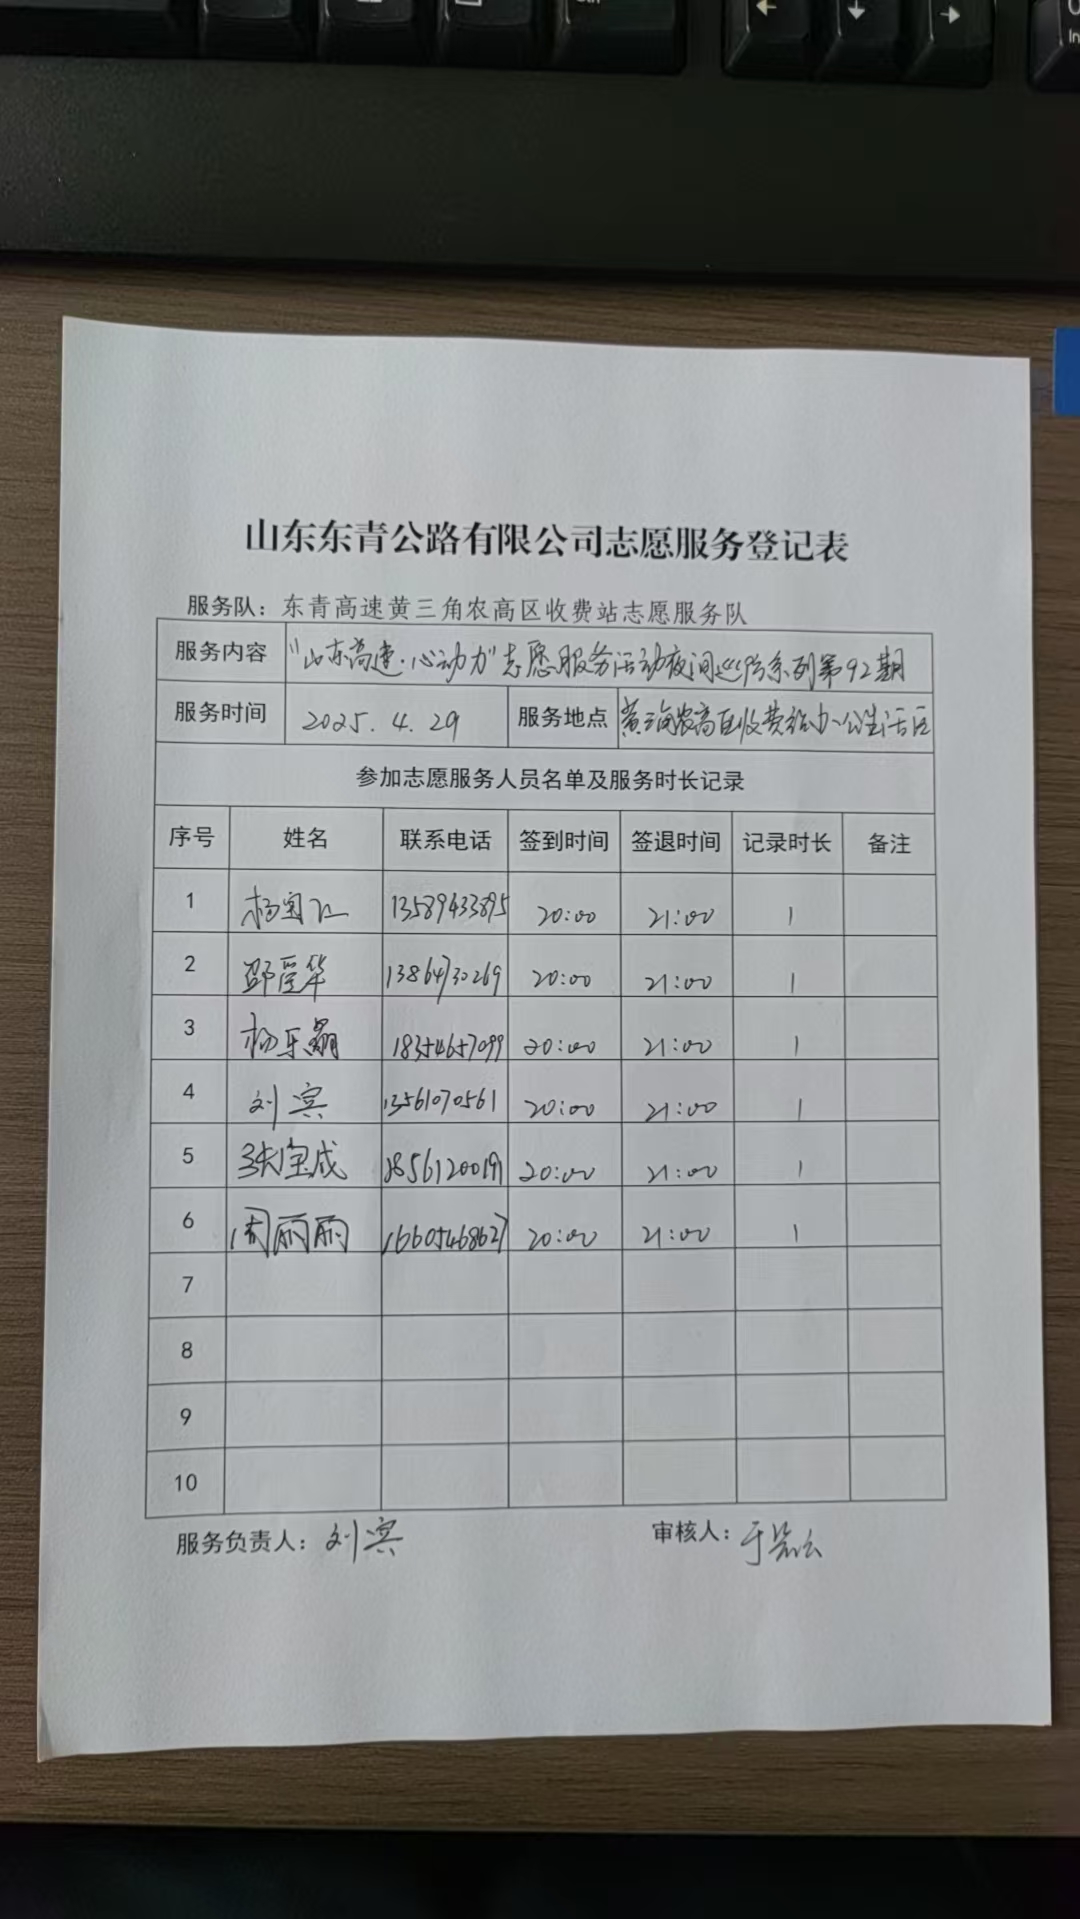 山东东青公路有限公司志愿服务登记表
服务队：东青高速黄三角农高区收费站志愿服务队
服务内容 "山东高速·心动力"志愿服务活动夜间巡防系列第92期
服务时间 2025.4.29 服务地点 黄三角农高区收费站办公生活区
参加志愿服务人员名单及服务时长记录
序号 姓名 联系电话 签到时间 签退时间 记录时长 备注
1 杨 13589433895 20:00 21:00 1
2 邵 华 13864730269 20:00 21:00 1
3 杨乐 18354657099 20:00 21:00 1
4 刘滨 13561070561 20:00 21:00 1
5 张宝成 18561200191 20:00 21:00 1
6 周丽丽 16605468627 20:00 21:00 1
7
8
9
10
服务负责人：刘滨 审核人：于